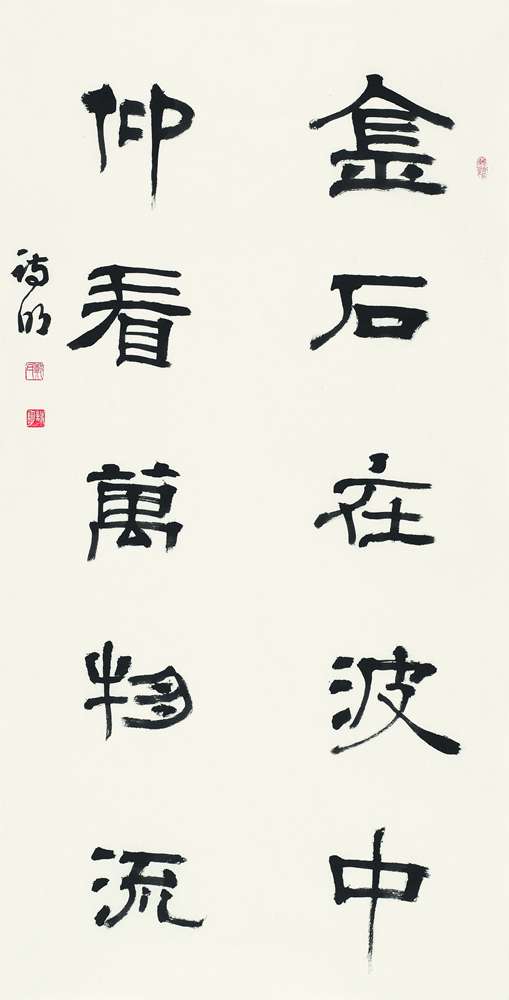 金石在波中
仰看萬物流